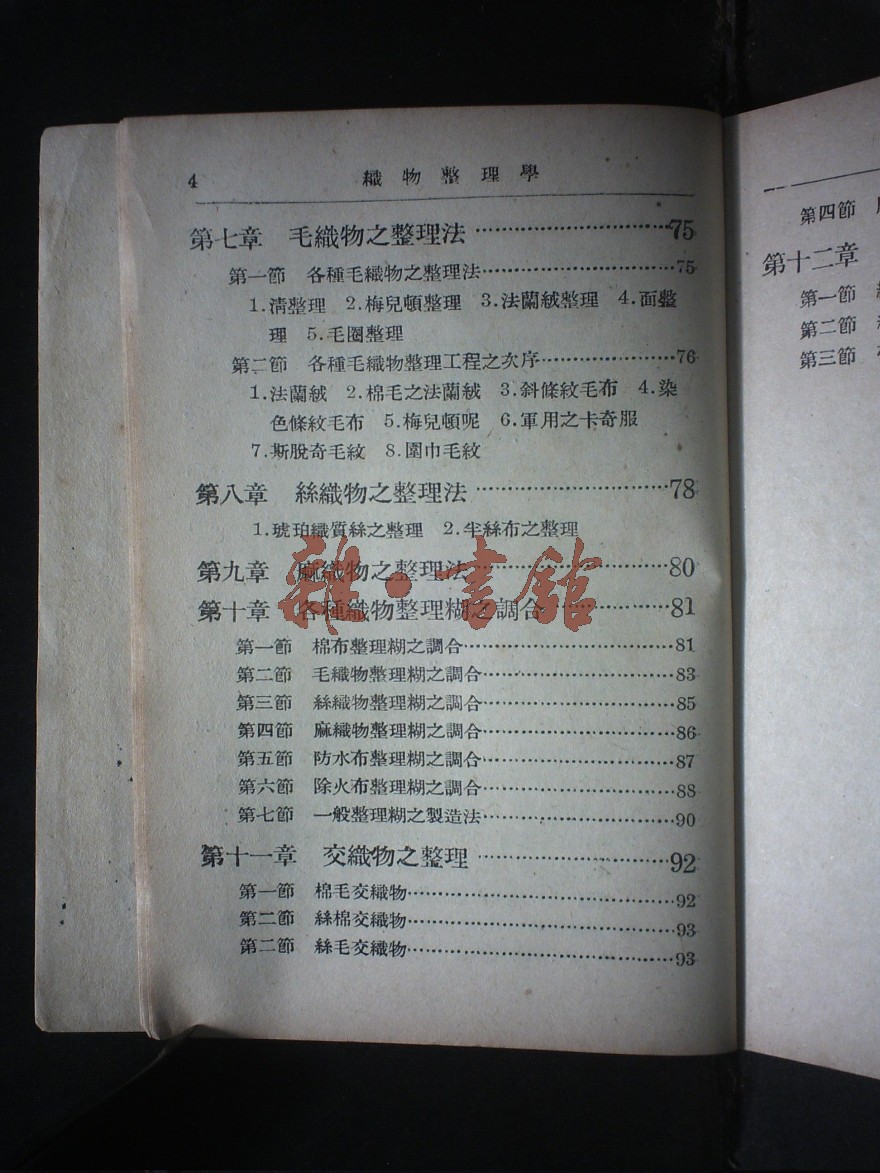 4 織物整理學
第七章 毛織物之整理法⋯⋯75
第一節 各種毛織物之整理法⋯⋯75
1.清整理 2.梅兒頓整理 3.法蘭絨整理 4.面整
理 5.毛圈整理
第二節 各種毛織物整理工程之次序⋯⋯76
1.法蘭絨 2.棉毛之法蘭絨 3.斜條紋毛布 4.染
色條紋毛布 5.梅兒頓呢 6.軍用之卡奇服
7.斯脫奇毛紋 8.圍巾毛紋
第八章 絲織物之整理法⋯⋯78
1.琥珀織質絲之整理 2.半絲布之整理
第九章 麻織物之整理法⋯⋯80
第十章 各種織物整理糊之調合⋯⋯81
雜·書館
第一節 棉布整理糊之調合⋯⋯81
第二節 毛織物整理糊之調合⋯⋯83
第三節 絲織物整理糊之調合⋯⋯85
第四節 麻織物整理糊之調合⋯⋯86
第五節 防水布整理糊之調合⋯⋯87
第六節 除火布整理糊之調合⋯⋯88
第七節 一般整理糊之製造法⋯⋯90
第十一章 交織物之整理⋯⋯92
第一節 棉毛交織物⋯⋯92
第二節 絲棉交織物⋯⋯93
第二節 絲毛交織物⋯⋯93
第四節
第十二章
第一節
第二節
第三節